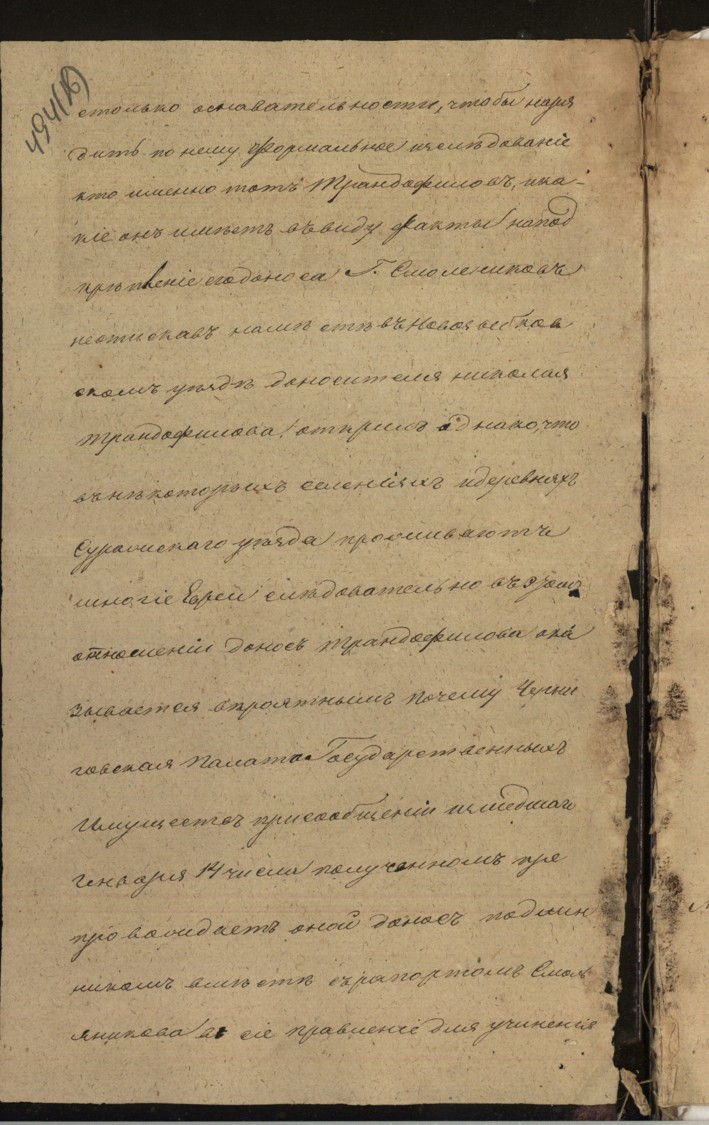 494(16)
столько основательности, чтобы наря
дить по нему формальное изслѣдованіе
кто именно тотъ Трандофиловъ, и ка-
кіе онъ имѣетъ въ виду факты на под
крѣпленіе его доноса Г. Смолениковъ
неотискавъ на мѣстѣ въ Новозыбков
скомъ уѣздѣ доносителя николая
трандофилова, открылъ однако, что
въ нѣкоторыхъ селеніяхъ и деревняхъ
Суражскаго уѣзда проживаютъ
многіе Евреи слѣдовательно въ этомъ
отношеніи доносъ трандофилова ока
зывается вѣроятнымъ почему Черни
говская Палата Государственныхъ
Имуществъ при сообщеніи изшедшаго
Генваря 14 числа полученномъ пре
провождаетъ оной доносъ подлин
никомъ вмѣстѣ съ рапортомъ Смол
яникова въ сіе правленіе для учиненія